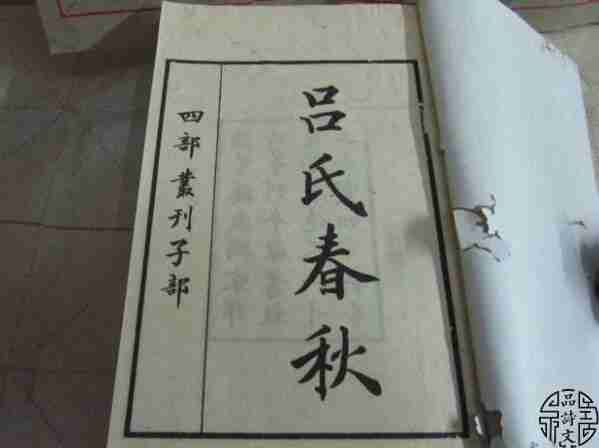 吕氏春秋
四部叢刊子部
品詩文